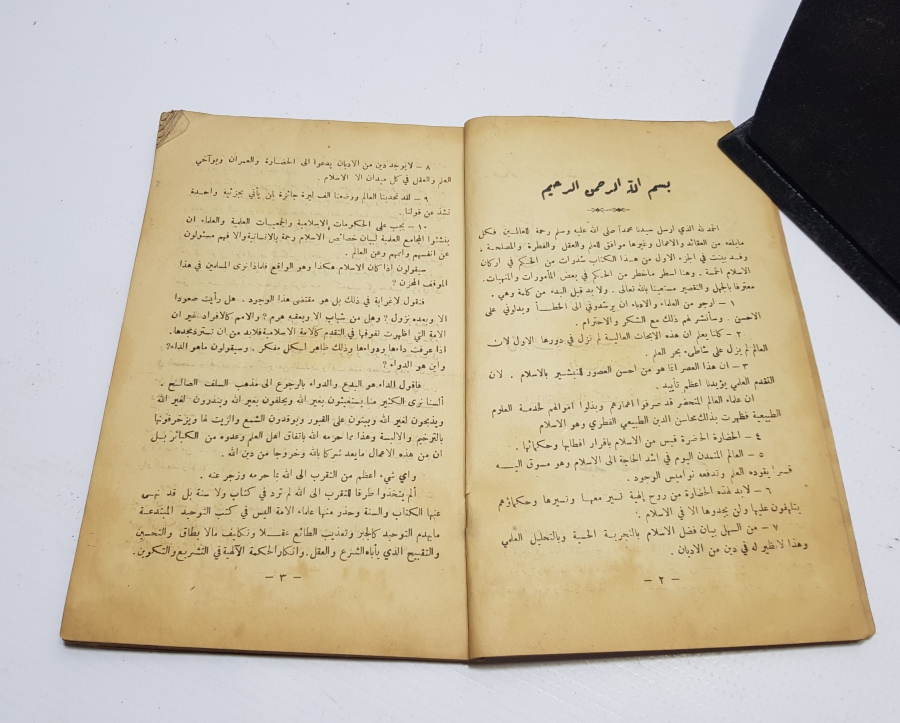 بسم الله الرحمن الرحيم
الحمد لله الذي ارسل سيدنا محمداً صلى الله عليه وسلم رحمة للعالمين فكل
مابلغه من العقائد والاعمال وغيرها موافق للعلم والعقل والفطرة والمصلحة .
وقد بينت في الجزء الاول من هذا الكتاب شذرات من الحكم في اركان
الاسلام الخمسة . وهنا اسطر ماخطر من الحكم في بعض المأمورات والمنهيات.
معترفا بالجهل والتقصير مستعينا بالله تعالى . ولا بد قبل البدء من كلمة وهي .
١ – ارجو من العلماء والادباء ان يرشدوني الى الخطأ ويدلوني على
الاحسن . وسأنشر لهم ذلك مع الشكر والاحترام .
٢ – كلنا يعلم ان هذه الابحاث العالية لم تزل في دورها الاول لان
العالم لم يزل على شاطىء بحر العلم .
٣ – ان هذا العصر لما هو من احسن العصور للتبشير بالاسلام . لان
التقدم العلمي يؤيدنا اعظم تأييد .
ان علماء العالم المتحضر قد صرفوا اعمارهم وبذلوا اموالهم لخدمة العلوم
الطبيعية فظهرت بذلك محاسن الدين الطبيعي الفطري وهو الاسلام
٤ – الحضارة الحاضرة قبس من الاسلام باقرار اقطابها وحكمائها .
٥ – العالم المتمدن اليوم في اشد الحاجة الى الاسلام وهو مسوق اليه
قسرا يقوده العلم وتدفعه نواميس الوجود .
٦ – لابد لهذه الحضارة من روح إلهية تسير معها وتسيرها وحكماؤهم
يتلهفون عليها ولن يجدوها الا في الاسلام .
٧ – من السهل بيان فضل الاسلام بالتجربة الحسية وبالتحليل العلمي
وهذا لانظير له في دين من الاديان .
– ٢ –
٨ – لايوجد دين من الاديان يدعوا الى الحضارة والعمران ويوآخي
العلم والعقل في كل ميدان الا الاسلام .
٩ – لقد تحدينا العالم ووضعنا الف ليرة جائزة لمن يأتي بجزئية واحدة
تشذ عن قولنا .
١٠ – يجب على الحكومات الاسلامية والجمعيات العلمية والعلماء ان
ينشئوا المجامع العلمية لبيان خصائص الاسلام رحمة بالانسانية والا فهم مسئولون
عن انفسهم واممهم وعن العالم .
سيقولون اذا كان الاسلام هكذا وهو الواقع فلماذا نرى المسلمين في هذا
الموقف المخزن ؟
فنقول لاغرابة في ذلك بل هو مقتضى هذا الوجود . هل رأيت صعودا
الا وبعده نزول ؟ وهل من شباب الا ويعقبه هرم ؟ والامم كالافراد غير ان
الامة التي اظهرت تفوقها في التقدم كالامة الاسلامية فلابد من ان تسترد مجدها.
اذا عرفت داءها ودواءها وذلك ظاهر لكل مفكر . وسيقولون ماهو الداء؟
واين هو الدواء ؟
فاقول الداء هو البدع والدواء بالرجوع الى مذهب السلف الصالح .
ألسنا نرى الكثير منا يستغيثون بغير الله ويحلفون بغير الله وينذرون لغير الله
ويذبحون لغير الله ويبنون على القبور ويوقدون الشمع والزيت لها ويزخرفونها
بالترخيم والالبسة وهذا مما حرمه الله باتفاق اهل العلم وعدوه من الكبائر بل
ان من هذه الاعمال مايعد شركا بالله وخروجا من دين الله .
واي شيء اعظم من التقرب الى الله بما حرمه وزجر عنه .
ألم يتخذوا طرقا للتقرب الى الله لم ترد في كتاب ولا سنة بل قد نهى
عنها الكتاب والسنة وحذر منها علماء الامة اليس في كتب التوحيد المبتدعة
مايهدم التوحيد كالجبر وتعذيب الطائع عقلا وتكليف مالا يطاق والتحسين
والتقبيح الذي يأباه الشرع والعقل . وانكار الحكمة الآلهية في التشريع والتكوين.
– ٣ –